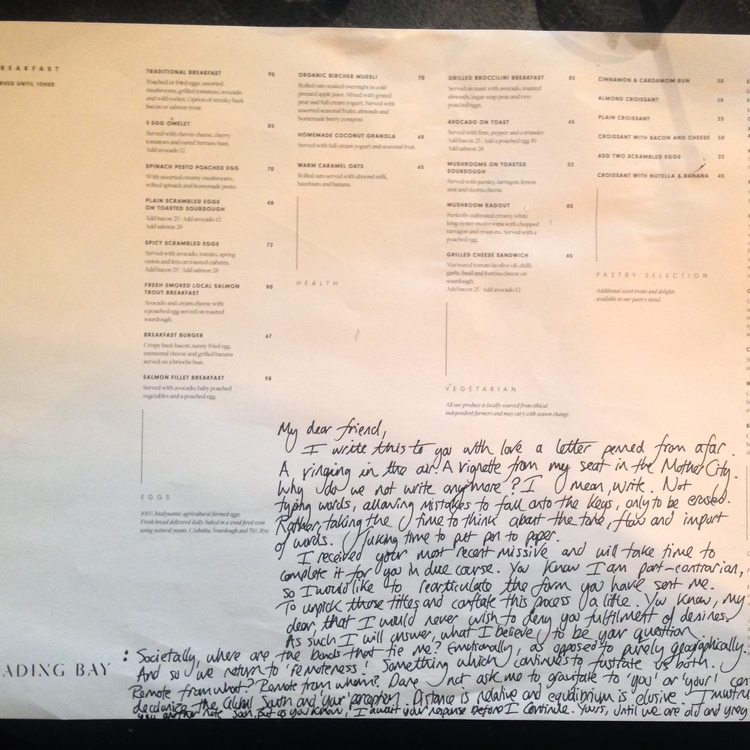 REAKFAST
RVED UNTIL
TRADITIONAL BREAKFAST 90
Poached or fried eggs, assorted
mushrooms, grilled tomatoes, avocado
and wild rocket. Option of streaky back
bacon or salmon trout.
3 EGG OMELET 85
Served with chevin cheese, cherry
tomatoes and cured Serrano ham.
Add avocado 12
SPINACH PESTO POACHED EGG 70
With assorted creamy mushrooms,
wilted spinach and homemade pesto.
PLAIN SCRAMBLED EGGS 48
ON TOASTED SOURDOUGH
Add bacon 25 Add avocado 12
Add salmon 28
SPICY SCRAMBLED EGGS 72
Served with avocado, tomato, spring
onion and feta on toasted ciabatta.
Add bacon 25 Add salmon 28
FRESH SMOKED LOCAL SALMON 80
TROUT BREAKFAST
Avocado and cream cheese with
a poached egg served on toasted
sourdough.
BREAKFAST BURGER 67
Crispy back bacon, sunny fried egg,
emmental cheese and grilled banana
served on a brioche bun.
SALMON FILLET BREAKFAST 98
Served with avocado, baby poached
vegetables and a poached egg.
EGGS
100% biodynamic agricultural farmed eggs.
Fresh bread delivered daily, baked in a wood fired oven
using natural yeasts. Ciabatta, Sourdough and 70% Rye.
ORGANIC BIRCHER MUESLI 70
Rolled oats soaked overnight in cold
pressed apple juice. Mixed with grated
pear and full cream yogurt. Served with
assorted seasonal fruits, almonds and
homemade berry compote.
HOMEMADE COCONUT GRANOLA 60
Served with full cream yogurt and seasonal fruit.
WARM CARAMEL OATS 65
Rolled oats served with almond milk,
hazelnuts and banana.
HEALTH
GRILLED BROCCILINI BREAKFAST 85
Served on toast with avocado, roasted
almonds, sugar snap peas and two
poached eggs.
AVOCADO ON TOAST 45
Served with lime, pepper and coriander.
Add bacon 25 Add a poached egg 10
Add salmon 28
MUSHROOMS ON TOASTED 52
SOURDOUGH
Served with parsley, tarragon, lemon
zest and ricotta cheese.
MUSHROOM RAGOUT 85
Perfectly cultivated creamy white
king oyster mushrooms with chopped
tarragon and croutons. Served with a
poached egg.
GRILLED CHEESE SANDWICH 45
Marinated tomato in olive oil, chilli,
garlic, basil and fontina cheese on
sourdough.
Add bacon 25 Add avocado 12
VEGETARIAN
All our produce is locally sourced from ethical
independent farmers and may vary with season change.
CINNAMON & CARDAMOM BUN
ALMOND CROISSANT
PLAIN CROISSANT 25
CROISSANT WITH BACON AND CHEESE 50
ADD TWO SCRAMBLED EGGS 25
CROISSANT WITH NUTELLA & BANANA 40
PASTRY SELECTION
Additional sweet treats and delights
available in our pastry stand.
My dear friend,
I write this to you with love a letter penned from afar.
A ringing in the air. A vignette from my seat in the Mother City.
Why do we not write anymore? I mean, write. Not
typing words, allowing mistakes to fall onto the keys, only to be erased.
Rather, taking the time to think about the tone, flow and import
of words. Taking time to put pen to paper.
I received your most recent missive and will take time to
complete it for you in due course. You know I am part-contrarian,
so I would like to rearticulate the form you have sent me.
To unpick those titles and conflate this process a little. You know, my
dear, that I would never wish to deny you fulfilment of desires.
As such I will answer, what I believe to be your question
ADING BAY : Societally, where are the bonds that tie me? Emotionally, as opposed to purely geographically.
And so we return to 'remoteness'! Something which continues to frustrate us both.
Remote from what? Remote from whom? Dare not ask me to gravitate to 'you' or 'your' cen
decolonize the Global South and your perception. Distance is relative and equilibrium is elusive. I must
you another note soon, but as you know, I await your response before I continue. Yours, until we are old and grey